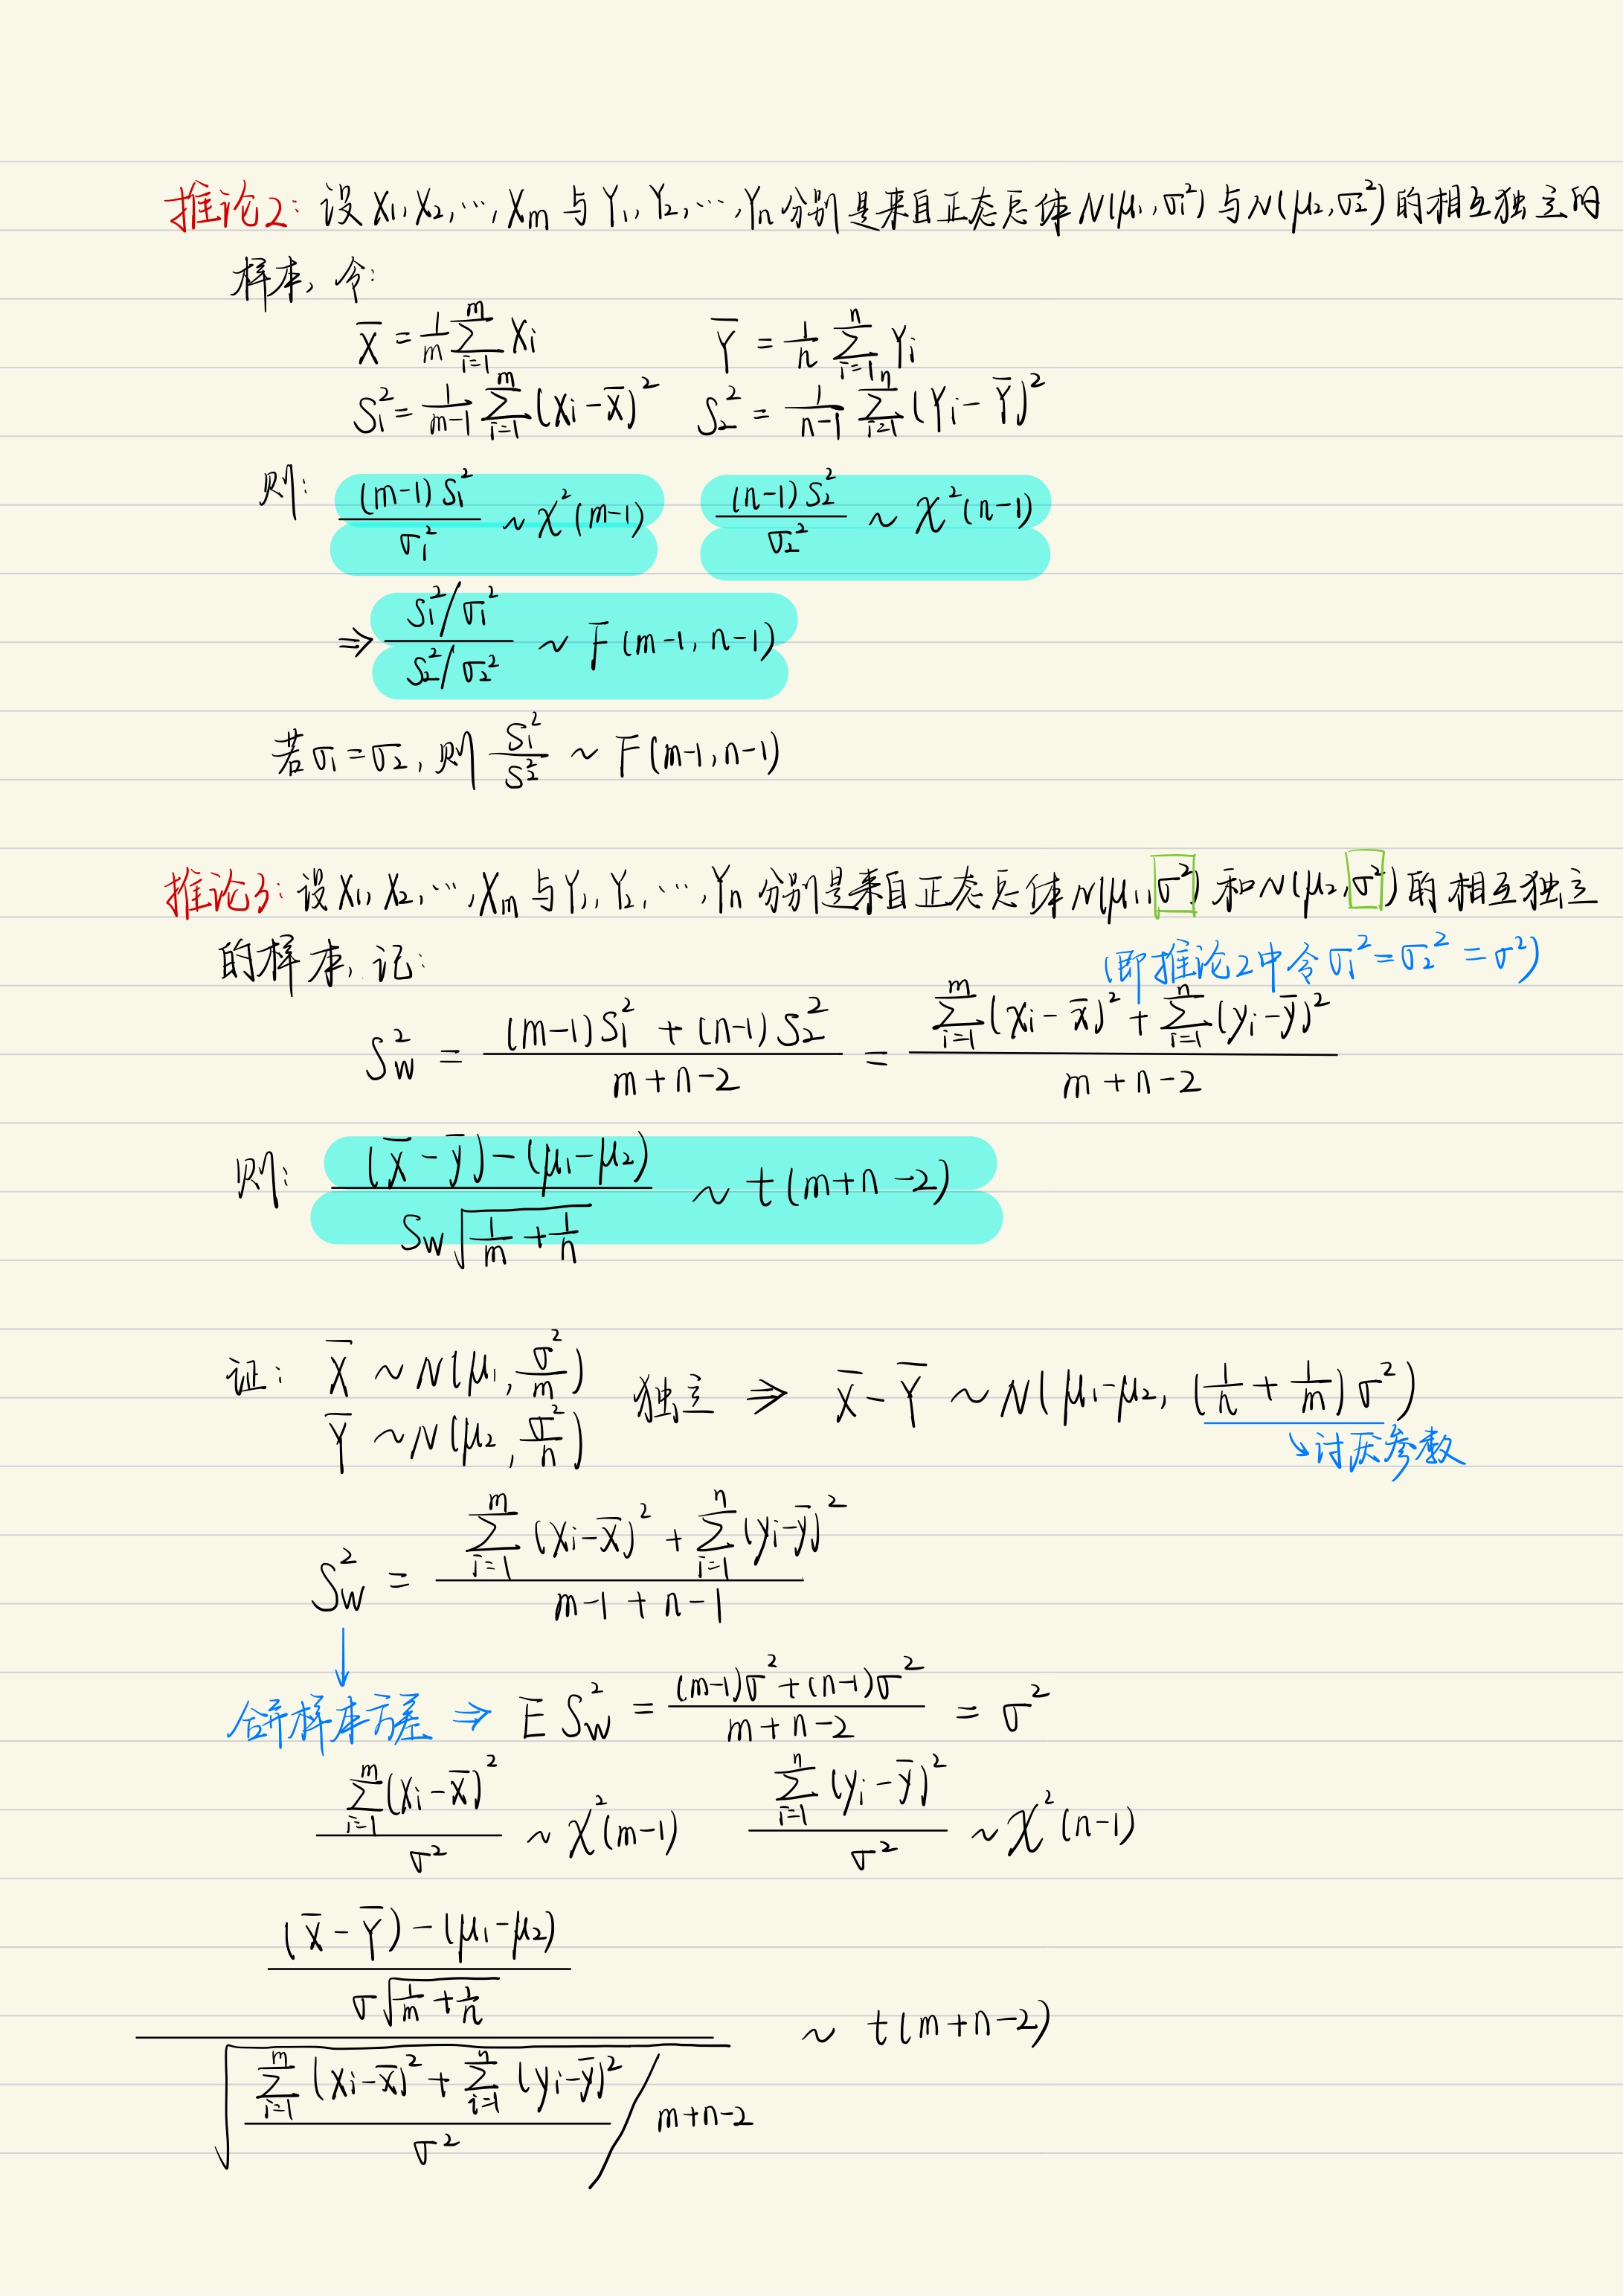 推论2: 设 X₁, X₂, ⋯, Xₘ 与 Y₁, Y₂, ⋯, Yₙ 分别是来自正态总体 N(μ₁, σ₁²) 与 N(μ₂, σ₂²) 的相互独立的
样本, 令:
X̄ = 1/m ∑_{i=1}^{m} Xᵢ  Ȳ = 1/n ∑_{i=1}^{n} Yᵢ
S₁² = 1/(m-1) ∑_{i=1}^{m} (Xᵢ - X̄)²  S₂² = 1/(n-1) ∑_{i=1}^{n} (Yᵢ - Ȳ)²
则: (m-1)S₁²/σ₁² ~ χ²(m-1)  (n-1)S₂²/σ₂² ~ χ²(n-1)
⇒ (S₁²/σ₁²)/(S₂²/σ₂²) ~ F(m-1, n-1)
若 σ₁ = σ₂, 则 S₁²/S₂² ~ F(m-1, n-1)
推论3: 设 X₁, X₂, ⋯, Xₘ 与 Y₁, Y₂, ⋯, Yₙ 分别是来自正态总体 N(μ₁, σ²) 和 N(μ₂, σ²) 的相互独立
的样本, 记:
(即推论2中令 σ₁² = σ₂² = σ²)
S_W² = ((m-1)S₁² + (n-1)S₂²)/(m+n-2) = (∑_{i=1}^{m} (xᵢ - x̄)² + ∑_{i=1}^{n} (yᵢ - ȳ)²)/(m+n-2)
则: ((x̄ - ȳ) - (μ₁ - μ₂))/(S_W √(1/m + 1/n)) ~ t(m+n-2)
证: X̄ ~ N(μ₁, σ²/m)
Ȳ ~ N(μ₂, σ²/n)
独立 ⇒ X̄ - Ȳ ~ N(μ₁ - μ₂, (1/n + 1/m)σ²)
↘讨厌参数
S_W² = (∑_{i=1}^{m} (xᵢ - x̄)² + ∑_{i=1}^{n} (yᵢ - ȳ)²)/(m-1+n-1)
↓
合并样本方差 ⇒ E S_W² = ((m-1)σ² + (n-1)σ²)/(m+n-2) = σ²
∑_{i=1}^{m} (xᵢ - x̄)²/σ² ~ χ²(m-1)  ∑_{i=1}^{n} (yᵢ - ȳ)²/σ² ~ χ²(n-1)
(((X̄ - Ȳ) - (μ₁ - μ₂))/(σ√(1/m + 1/n)))/√((∑_{i=1}^{m} (xᵢ - x̄)² + ∑_{i=1}^{n} (yᵢ - ȳ)²)/σ² / m+n-2) ~ t(m+n-2)